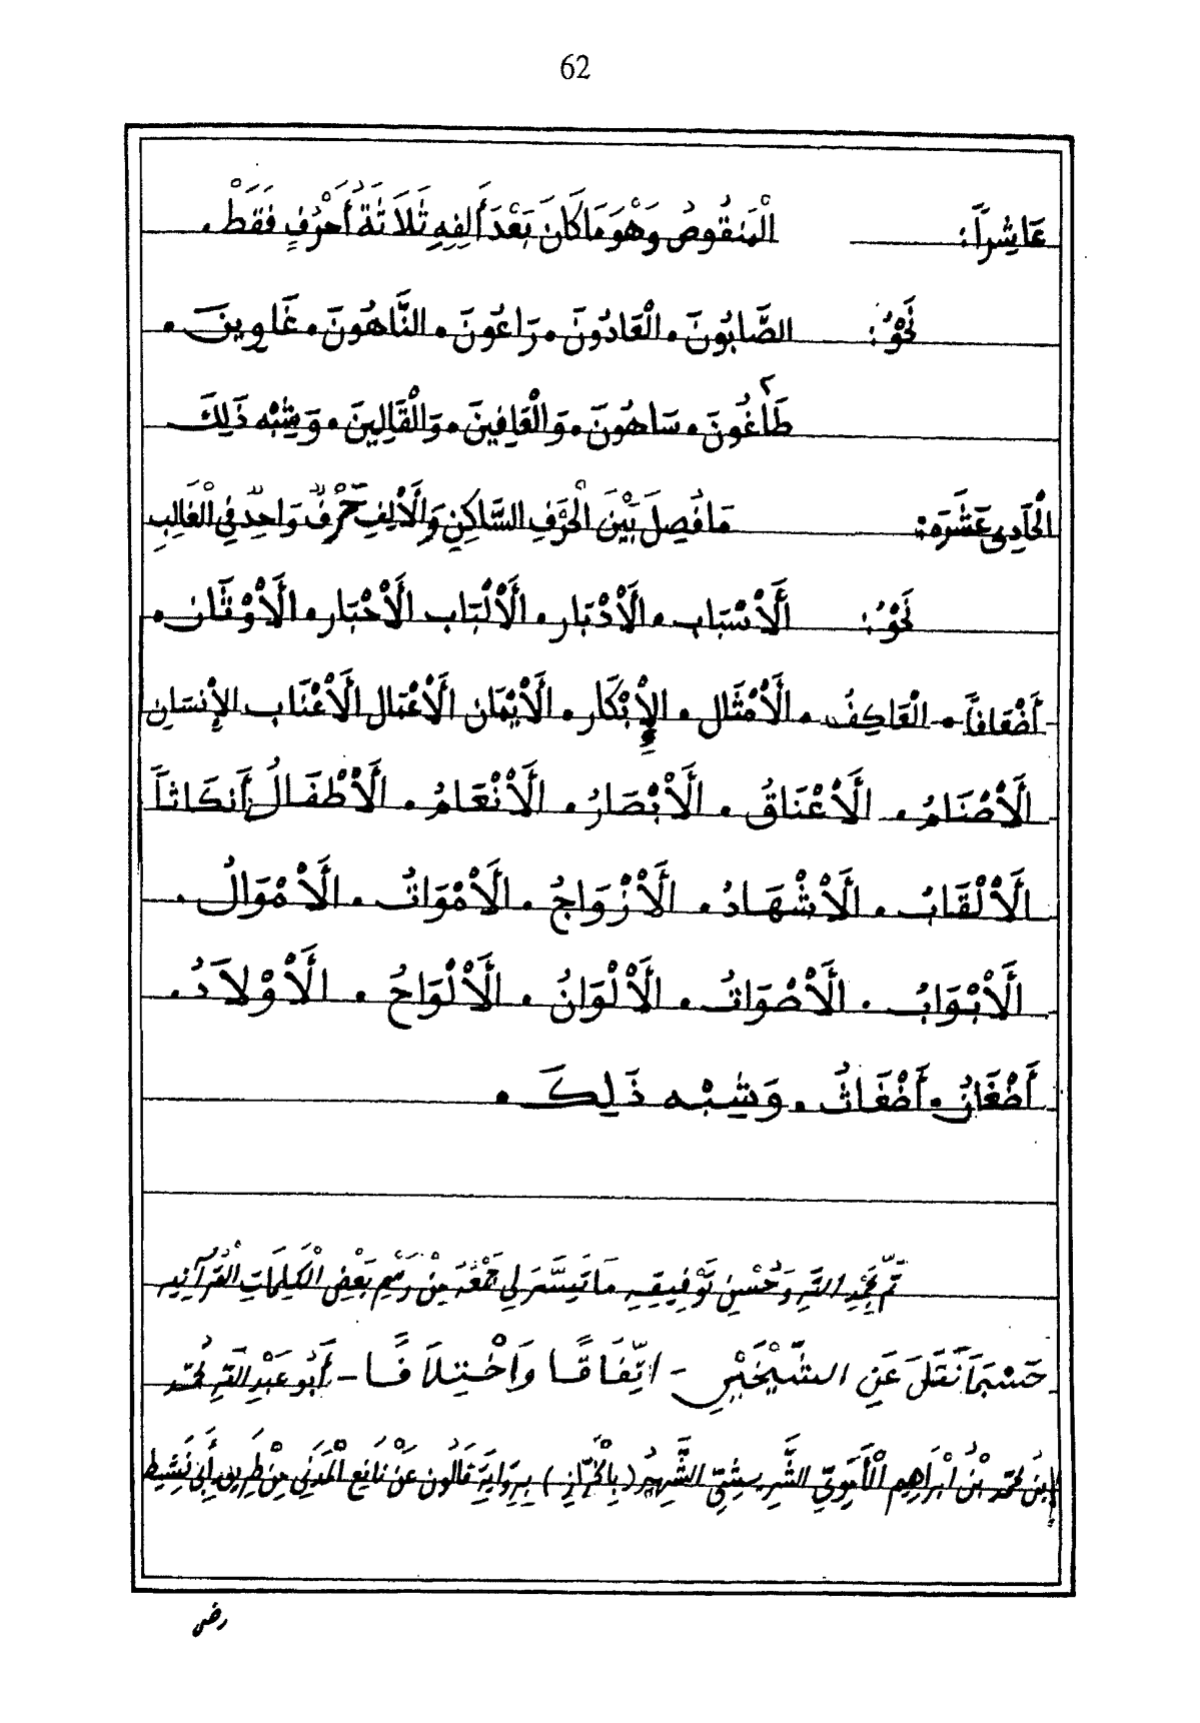 62
عَاشِراً: الْمَنقُوصُ وَهْوَ مَا كَانَ بَعْدَ أَلِفِهِ ثَلَاثَةُ أَحْرُفٍ فَقَطْ.
نَحْوُ: الصَّابُونَ. الْعَادُونَ. رَاعُونَ. النَّاهُونَ. غَاوِينَ.
طَاغُونَ. سَاهُونَ. وَالْعَافِينَ. وَالْقَالِينَ. وَشِبْه ذَلِكَ
الْحَادِي عَشَرَه: مَا فُصِلَ بَيْنَ الْحَرْفِ السَّاكِنِ وَالَأَلِفِ حَرْفٌ وَاحِدٌ فِي الْغَالِبِ
نَحْوُ: الَأسْبَاب. الَأدْبَار. الَألْبَاب الَأحْبَار. الَأوْثَان.
أَضْعَافاً. الْعَاكِفُ. الَأمْثَال. الإِبْكَار. الَأيْمَان الَأعْمَال الَأعْنَاب الإِنسَانِ
الَأصْنَامُ. الَأعْنَاقُ. الَأبْصَارُ. الَأنْعَامُ. الَأطْفَالُ. أَنكَاثاً
الَألْقَابُ. الَأشْهَادُ. الَأزْوَاجُ. الَأمْوَاتُ. الَأمْوَالُ.
الَأبْوَابُ. الَأصْوَاتُ. الَألْوَانُ. الَألْوَاحُ. الَأوْلَادُ.
أَضْغَانُ. أَضْغَاثُ. وَشِبْه ذَلِكَ.
تَمَّ بِحَمْدِ اللَّهِ وَحُسْنِ تَوْفِيقِهِ مَا تَيَسَّرَ لِي جَمْعُهُ مِنْ رَسْمِ بَعْضِ الْكَلِمَاتِ الْقُرْآنِيه
حَسْبَمَا نَقَلَ عَنِ الشَّيْخَيْنِ - اتِّفَاقًا وَاخْتِلَافًا - أَبُو عَبْدِ اللَّهِ مُحَمَّد
ابْنُ مُحَمَّد بْنُ ابْرَاهِيم الْأَمَوِيِّ الشَّرِيشِيِّ الشَّهِيرُ (بِالْخَرَّازِ) بِرِوَايَةِ قَالُون عَنْ نَافِعِ الْمَدَنِي مِنْ طَرِيق أَبِي نَشِيط
رضي